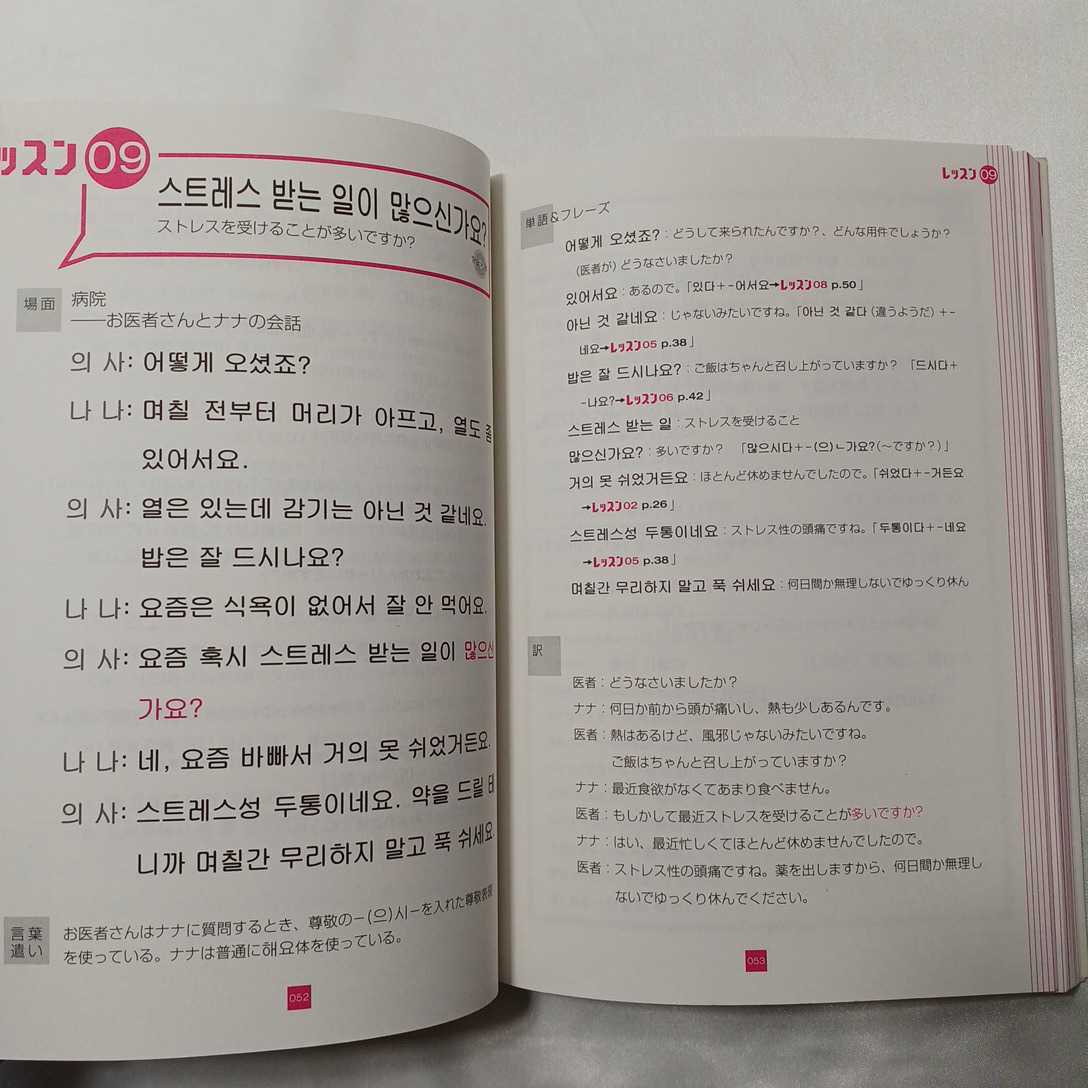 ッスン 09
스트레스 받는 일이 많으신가요?
ストレスを受けることが多いですか?
場面
病院
——お医者さんとナナの会話
의 사: 어떻게 오셨죠?
나 나: 며칠 전부터 머리가 아프고, 열도 좀
있어서요.
의 사: 열은 있는데 감기는 아닌 것 같네요.
밥은 잘 드시나요?
나 나: 요즘은 식욕이 없어서 잘 안 먹어요.
의 사: 요즘 혹시 스트레스 받는 일이 많으신
가요?
나 나: 네, 요즘 바빠서 거의 못 쉬었거든요.
의 사: 스트레스성 두통이네요. 약을 드릴 테
니까 며칠간 무리하지 말고 푹 쉬세요
言葉
遣い
お医者さんはナナに質問するとき、尊敬の-(으)시-を入れた尊敬表現
を使っている。ナナは普通に해요体を使っている。
052
レッスン 09
単語&フレーズ
어떻게 오셨죠?:どうして来られたんですか?、どんな用件でしょうか?
(医者が)どうなさいましたか?
있어서요:あるので。「있다+-어서요→レッスン08 p.50」
아닌 것 같네요:じゃないみたいですね。「아닌 것 같다(違うようだ)+-
네요→レッスン05 p.38」
밥은 잘 드시나요?:ご飯はちゃんと召し上がっていますか? 「드시다+
-나요?→レッスン06 p.42」
스트레스 받는 일:ストレスを受けること
많으신가요?:多いですか? 「많으시다+-(으)ㄴ가요?(〜ですか?)」
거의 못 쉬었거든요:ほとんど休めませんでしたので。「쉬었다+-거든요
→レッスン02 p.26」
스트레스성 두통이네요:ストレス性の頭痛ですね。「두통이다+-네요
→レッスン05 p.38」
며칠간 무리하지 말고 푹 쉬세요:何日間か無理しないでゆっくり休ん
訳
医者:どうなさいましたか?
ナナ:何日か前から頭が痛いし、熱も少しあるんです。
医者:熱はあるけど、風邪じゃないみたいですね。
ご飯はちゃんと召し上がっていますか?
ナナ:最近食欲がなくてあまり食べません。
医者:もしかして最近ストレスを受けることが多いですか?
ナナ:はい、最近忙しくてほとんど休めませんでしたので。
医者:ストレス性の頭痛ですね。薬を出しますから、何日間か無理し
ないでゆっくり休んでください。
053